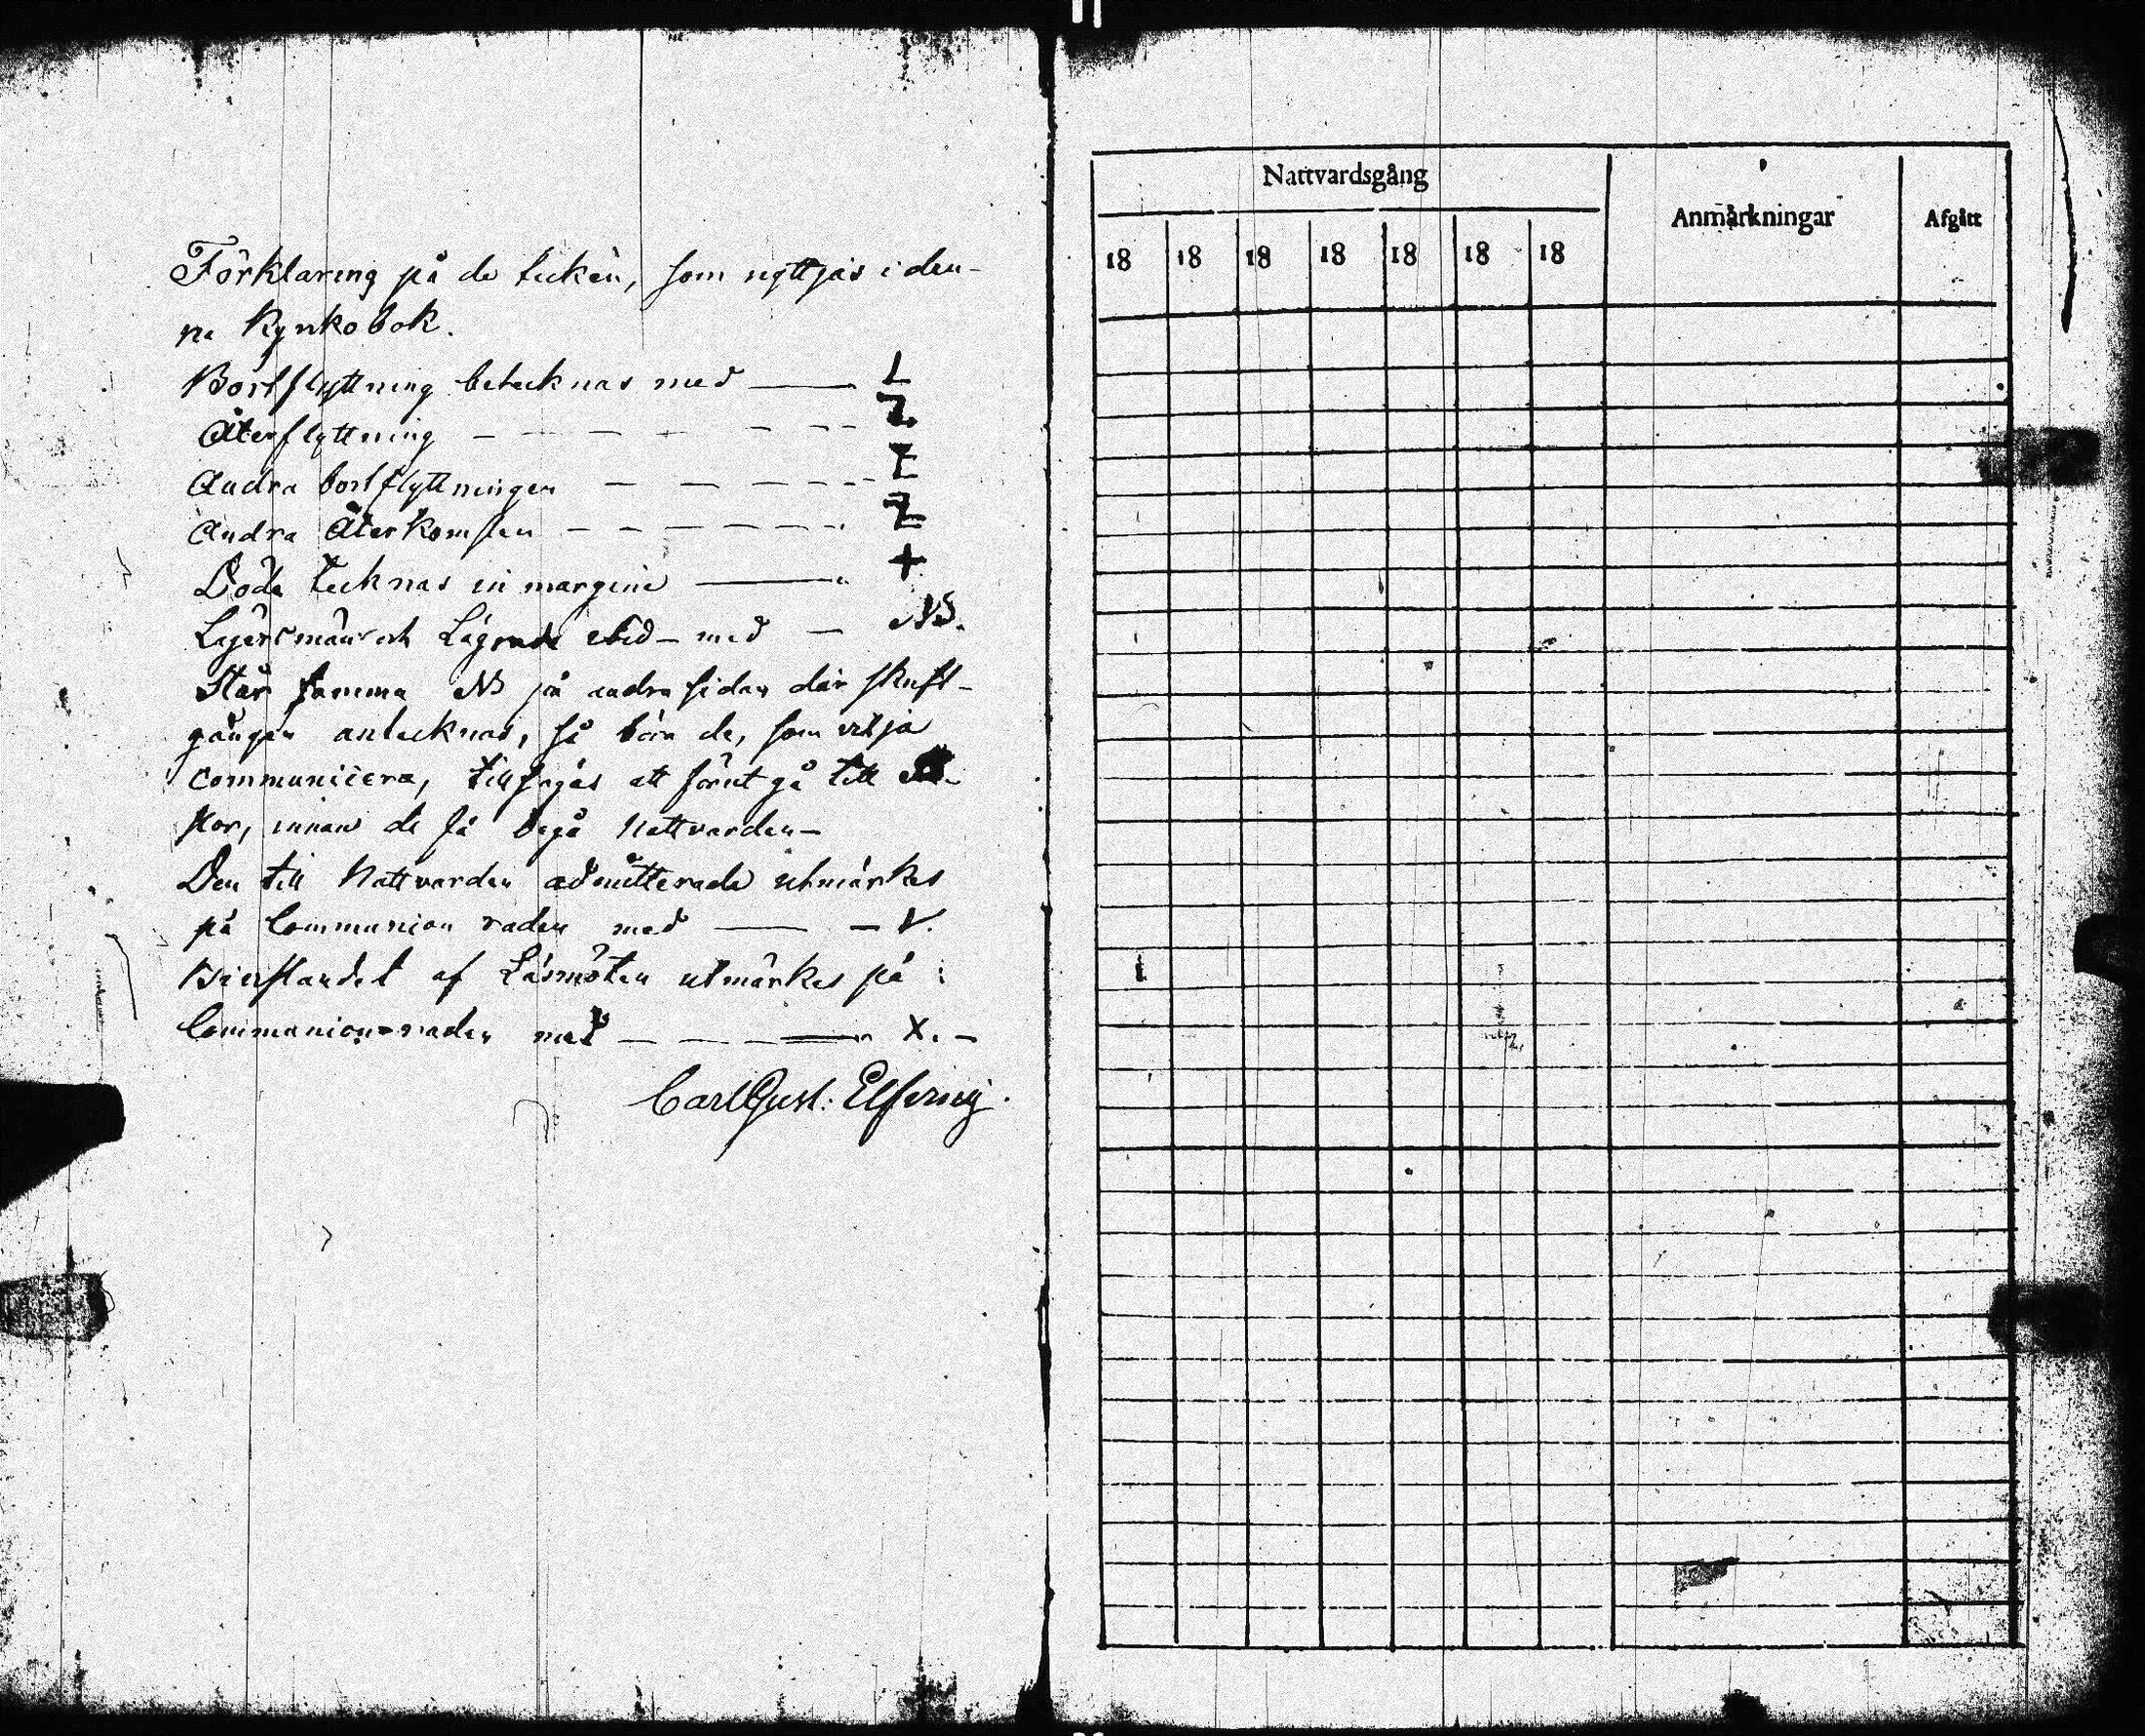 Förklaring på de tecken, som nyttjas i den-
na Kyrkobok.
Bortflyttning betecknas med — L
Återflyttning - - - - - - - Z
Andra bortflyttningen - - - - - - E
Andra Återkomsten - - - - - - - Z
Döda tecknas in margine — +
Lägersmän och Lägrade med — NB.
Står samma NB på andra sidan där skrift-
gången antecknas, så böra de, som vilja
communicera, tillsägas att förut gå till
innan de få begå Nattvarden —
Den till Nattvarden admitterade utmärkes
på Communion raden med — — V.
Bevistandet af Läsmöten utmärkes på
Communions-raden med - - - — X. —
Carl Gust: Elfving.
Nattvardsgång
Anmärkningar
Afgått
18 18 18 18 18 18 18